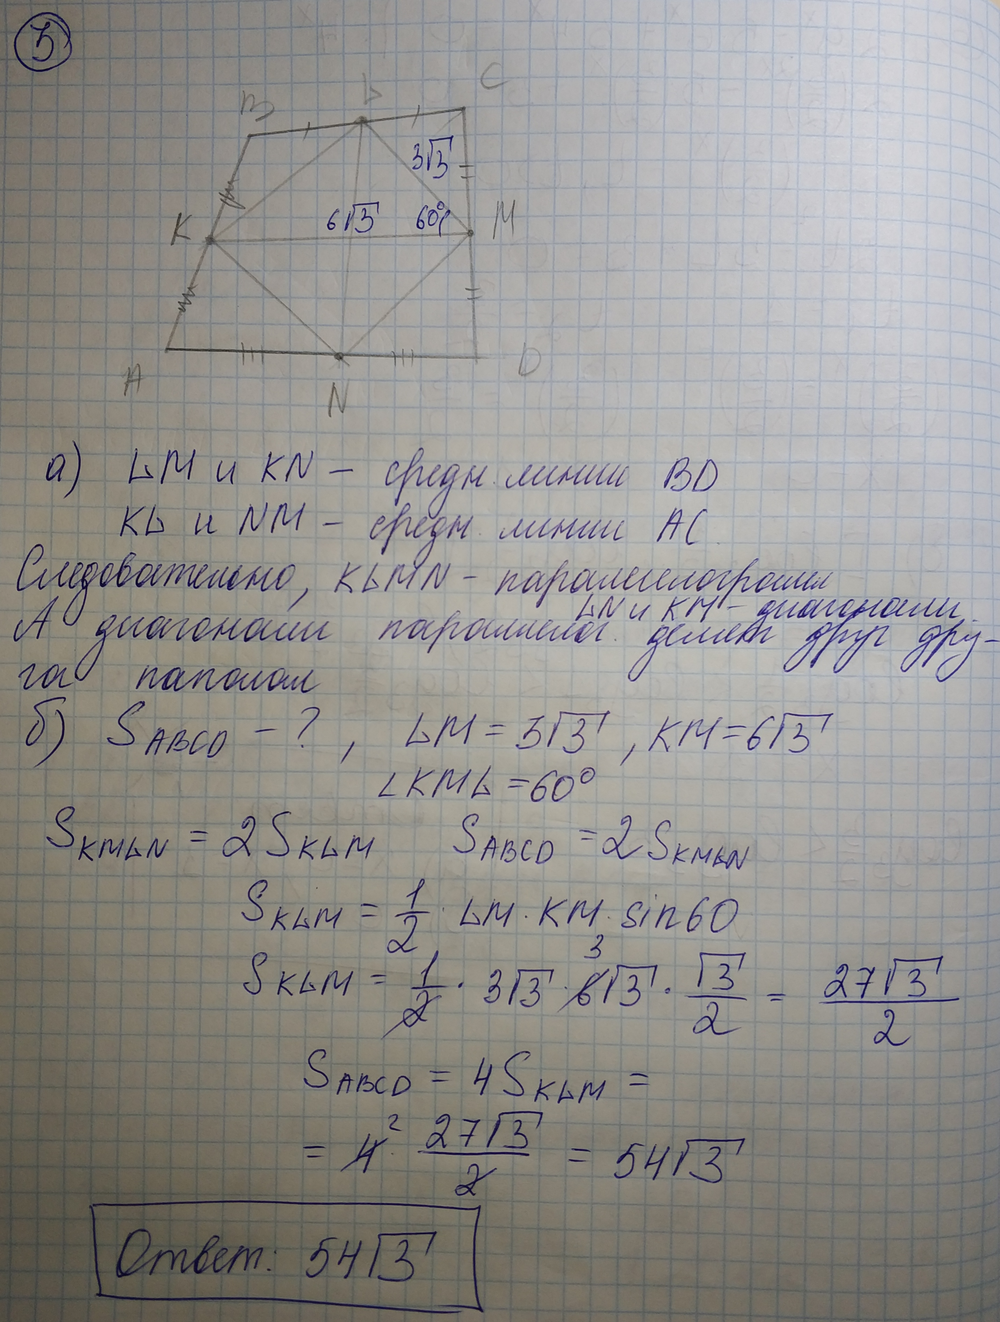 5
B L C
3√3
K 6√3 60° M
A N D
а) LM и KN – средн. линии BD
KL и NM – средн. линии AC
Следовательно, KLMN – параллелограмм
LN и KM – диагонали.
А диагонали параллелог. делят друг дру-
га пополам
б) S ABCD – ? , LM = 3√3 , KM = 6√3
∠KML = 60°
S KMLN = 2 S KLM S ABCD = 2 S KMLN
S KLM = 1/2 · LM · KM · sin 60
S KLM = 1/2 · 3√3 · 6√3 · √3/2 = 27√3/2
3
S ABCD = 4 S KLM =
= 4 ² · 27√3/2 = 54√3
Ответ: 54√3